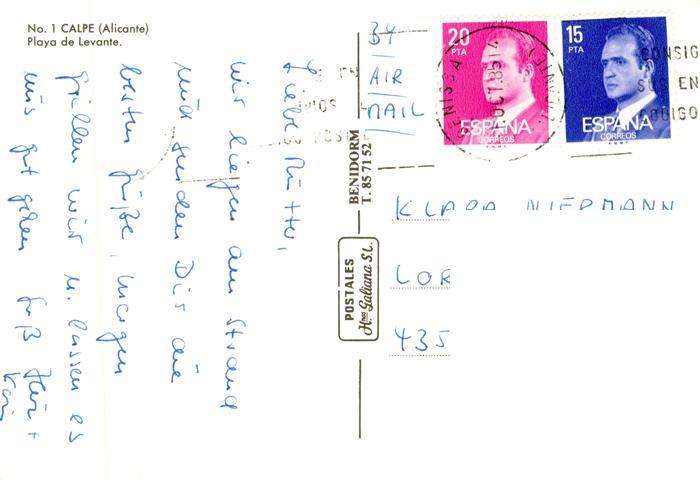 No. 1 CALPE (Alicante)
Playa de Levante.
Liebe Mutter,
wir liegen am Strand
und senden Dir die
besten Grüße. Morgen
grillen wir u. lassen es
uns gut gehen. Gruß
BENIDORM
T. 85 71 52
POSTALES
Hnos Galiana S.L.
BY
AIR
MAIL
20
PTA
ESPAÑA
CORREOS
15
PTA
ESPAÑA
CORREOS
CONSIG
EN
KLARA NIEDMANN
LOR
435